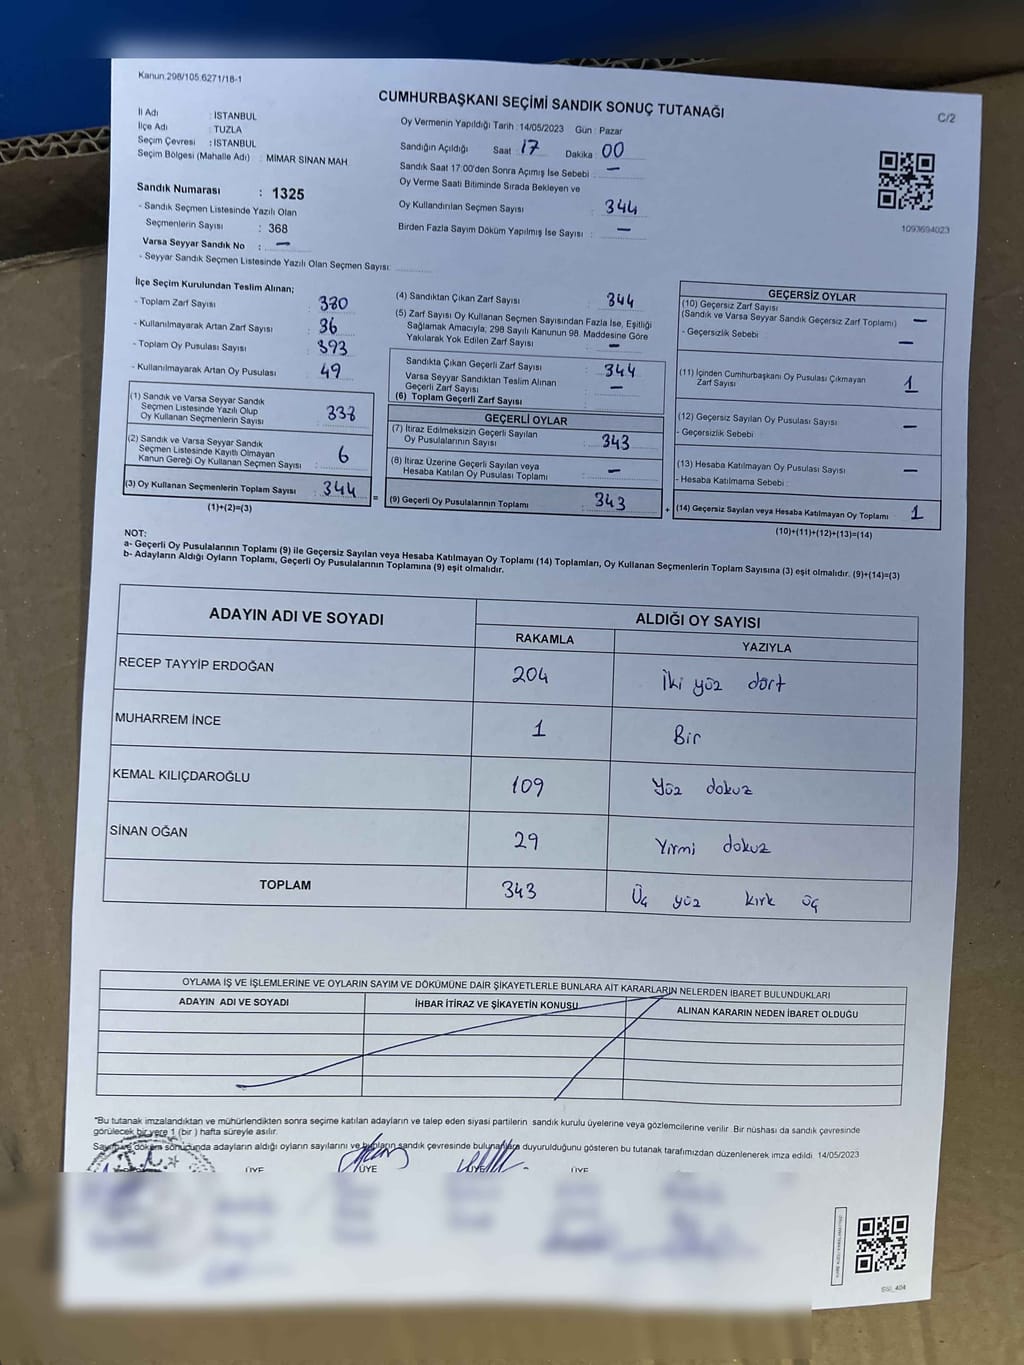 Kanun.298/105.6271/18-1
CUMHURBAŞKANI SEÇİMİ SANDIK SONUÇ TUTANAĞI
C/2
İl Adı : İSTANBUL
İlçe Adı : TUZLA
Seçim Çevresi : İSTANBUL
Seçim Bölgesi (Mahalle Adı) : MİMAR SİNAN MAH
Sandık Numarası : 1325
- Sandık Seçmen Listesinde Yazılı Olan
Seçmenlerin Sayısı : 368
Varsa Seyyar Sandık No : —
- Seyyar Sandık Seçmen Listesinde Yazılı Olan Seçmen Sayısı:
Oy Vermenin Yapıldığı Tarih : 14/05/2023 Gün : Pazar
Sandığın Açıldığı Saat 17 Dakika 00
Sandık Saat 17:00'den Sonra Açımış İse Sebebi : —
Oy Verme Saati Bitiminde Sırada Bekleyen ve
Oy Kullandırılan Seçmen Sayısı : 344
Birden Fazla Sayım Döküm Yapılmış İse Sayısı : —
1093694023
İlçe Seçim Kurulundan Teslim Alınan;
- Toplam Zarf Sayısı : 380
- Kullanılmayarak Artan Zarf Sayısı : 36
- Toplam Oy Pusulası Sayısı : 393
- Kullanılmayarak Artan Oy Pusulası : 49
(1) Sandık ve Varsa Seyyar Sandık
Seçmen Listesinde Yazılı Olup
Oy Kullanan Seçmenlerin Sayısı : 338
(2) Sandık ve Varsa Seyyar Sandık
Seçmen Listesinde Kayıtlı Olmayan
Kanun Gereği Oy Kullanan Seçmen Sayısı : 6
(3) Oy Kullanan Seçmenlerin Toplam Sayısı : 344 =
(1)+(2)=(3)
(4) Sandıktan Çıkan Zarf Sayısı : 344
(5) Zarf Sayısı Oy Kullanan Seçmen Sayısından Fazla İse, Eşitliği
Sağlamak Amacıyla; 298 Sayılı Kanunun 98. Maddesine Göre
Yakılarak Yok Edilen Zarf Sayısı : —
Sandıkta Çıkan Geçerli Zarf Sayısı : 344
Varsa Seyyar Sandıktan Teslim Alınan
Geçerli Zarf Sayısı : —
(6) Toplam Geçerli Zarf Sayısı :
GEÇERLİ OYLAR
(7) İtiraz Edilmeksizin Geçerli Sayılan
Oy Pusulalarının Sayısı : 343
(8) İtiraz Üzerine Geçerli Sayılan veya
Hesaba Katılan Oy Pusulası Toplamı : —
(9) Geçerli Oy Pusulalarının Toplamı : 343 +
GEÇERSİZ OYLAR
(10) Geçersiz Zarf Sayısı
(Sandık ve Varsa Seyyar Sandık Geçersiz Zarf Toplamı) —
- Geçersizlik Sebebi : —
(11) İçinden Cumhurbaşkanı Oy Pusulası Çıkmayan
Zarf Sayısı : 1
(12) Geçersiz Sayılan Oy Pusulası Sayısı : —
- Geçersizlik Sebebi :
(13) Hesaba Katılmayan Oy Pusulası Sayısı : —
- Hesaba Katılmama Sebebi :
(14) Geçersiz Sayılan veya Hesaba Katılmayan Oy Toplamı 1
(10)+(11)+(12)+(13)=(14)
NOT:
a- Geçerli Oy Pusulalarının Toplamı (9) ile Geçersiz Sayılan veya Hesaba Katılmayan Oy Toplamı (14) Toplamları, Oy Kullanan Seçmenlerin Toplam Sayısına (3) eşit olmalıdır. (9)+(14)=(3)
b- Adayların Aldığı Oyların Toplamı, Geçerli Oy Pusulalarının Toplamına (9) eşit olmalıdır.
ADAYIN ADI VE SOYADI ALDIĞI OY SAYISI
RAKAMLA YAZIYLA
RECEP TAYYİP ERDOĞAN 204 İki yüz dört
MUHARREM İNCE 1 Bir
KEMAL KILIÇDAROĞLU 109 Yüz dokuz
SİNAN OĞAN 29 Yirmi dokuz
TOPLAM 343 Üç yüz kırk üç
OYLAMA İŞ VE İŞLEMLERİNE VE OYLARIN SAYIM VE DÖKÜMÜNE DAİR ŞİKAYETLERLE BUNLARA AİT KARARLARIN NELERDEN İBARET BULUNDUKLARI
ADAYIN ADI VE SOYADI İHBAR İTİRAZ VE ŞİKAYETİN KONUSU ALINAN KARARIN NEDEN İBARET OLDUĞU
"Bu tutanak imzalandıktan ve mühürlendikten sonra seçime katılan adayların ve talep eden siyasi partilerin sandık kurulu üyelerine veya gözlemcilerine verilir. Bir nüshası da sandık çevresinde
görülecek bir yere 1 (bir ) hafta süreyle asılır.
Sayım ve döküm sonucunda adayların aldığı oyların sayılarını ve bunların sandık çevresinde bulunanlara duyurulduğunu gösteren bu tutanak tarafımızdan düzenlenerek imza edildi. 14/05/2023
ÜYE ÜYE ÜYE ÜYE